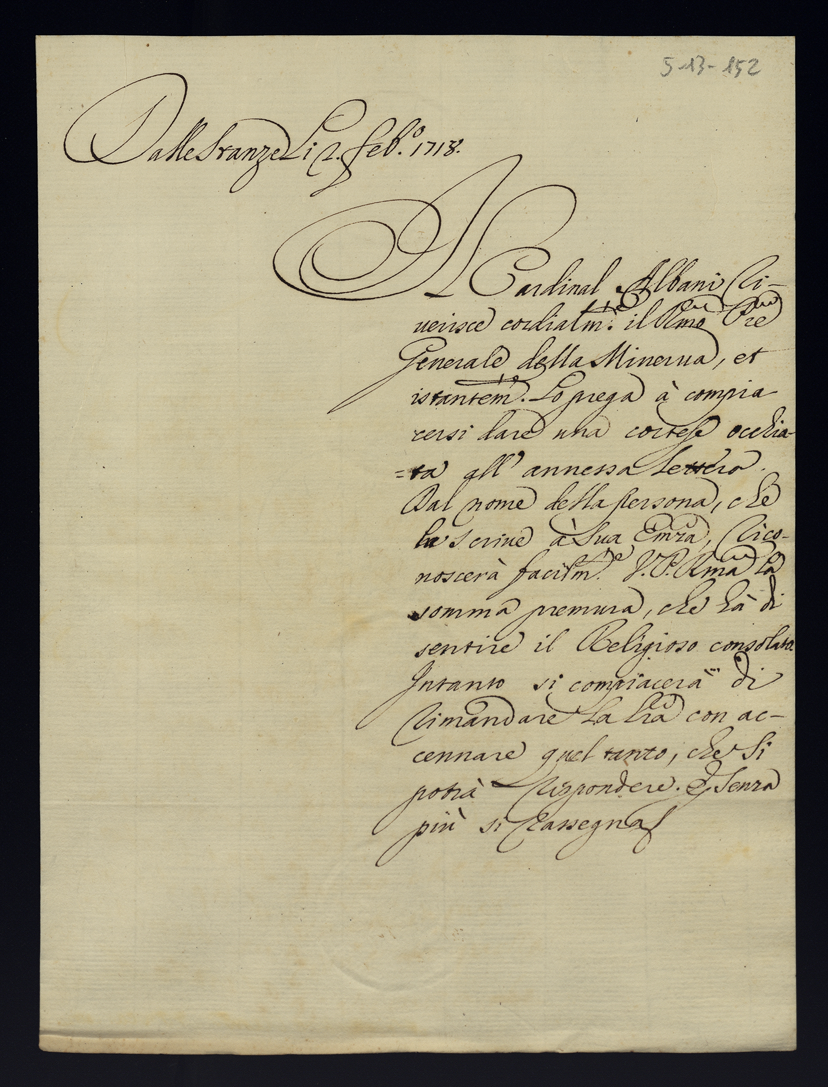 5-13-152
Dalle Stanze Li 2. Feb.º 1718.
Il Cardinal Albani Ri-
uerisce cordialm.te il Rmo Pre
Generale della Minerua, et
istantem.te Lo prega à compia
cersi dare una cortese occhia-
=ta all' annessa Lettera.
Dal nome della persona, che
la scriue à Sua Emza, Rico-
noscerà facilm.te V. P. Rma La
somma premura, che hà di
sentire il Religioso consolato.
Intanto si compiacerà di
rimandare La lrã con ac-
cennare quel tanto, che si
potrà rispondere. E senza
più si rassegna